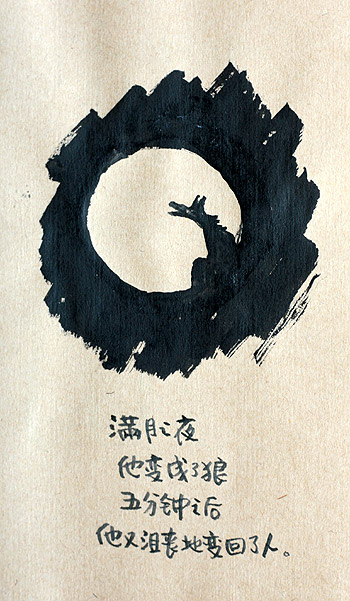 满月之夜
他变成了狼
五分钟之后
他又沮丧地变回了人。